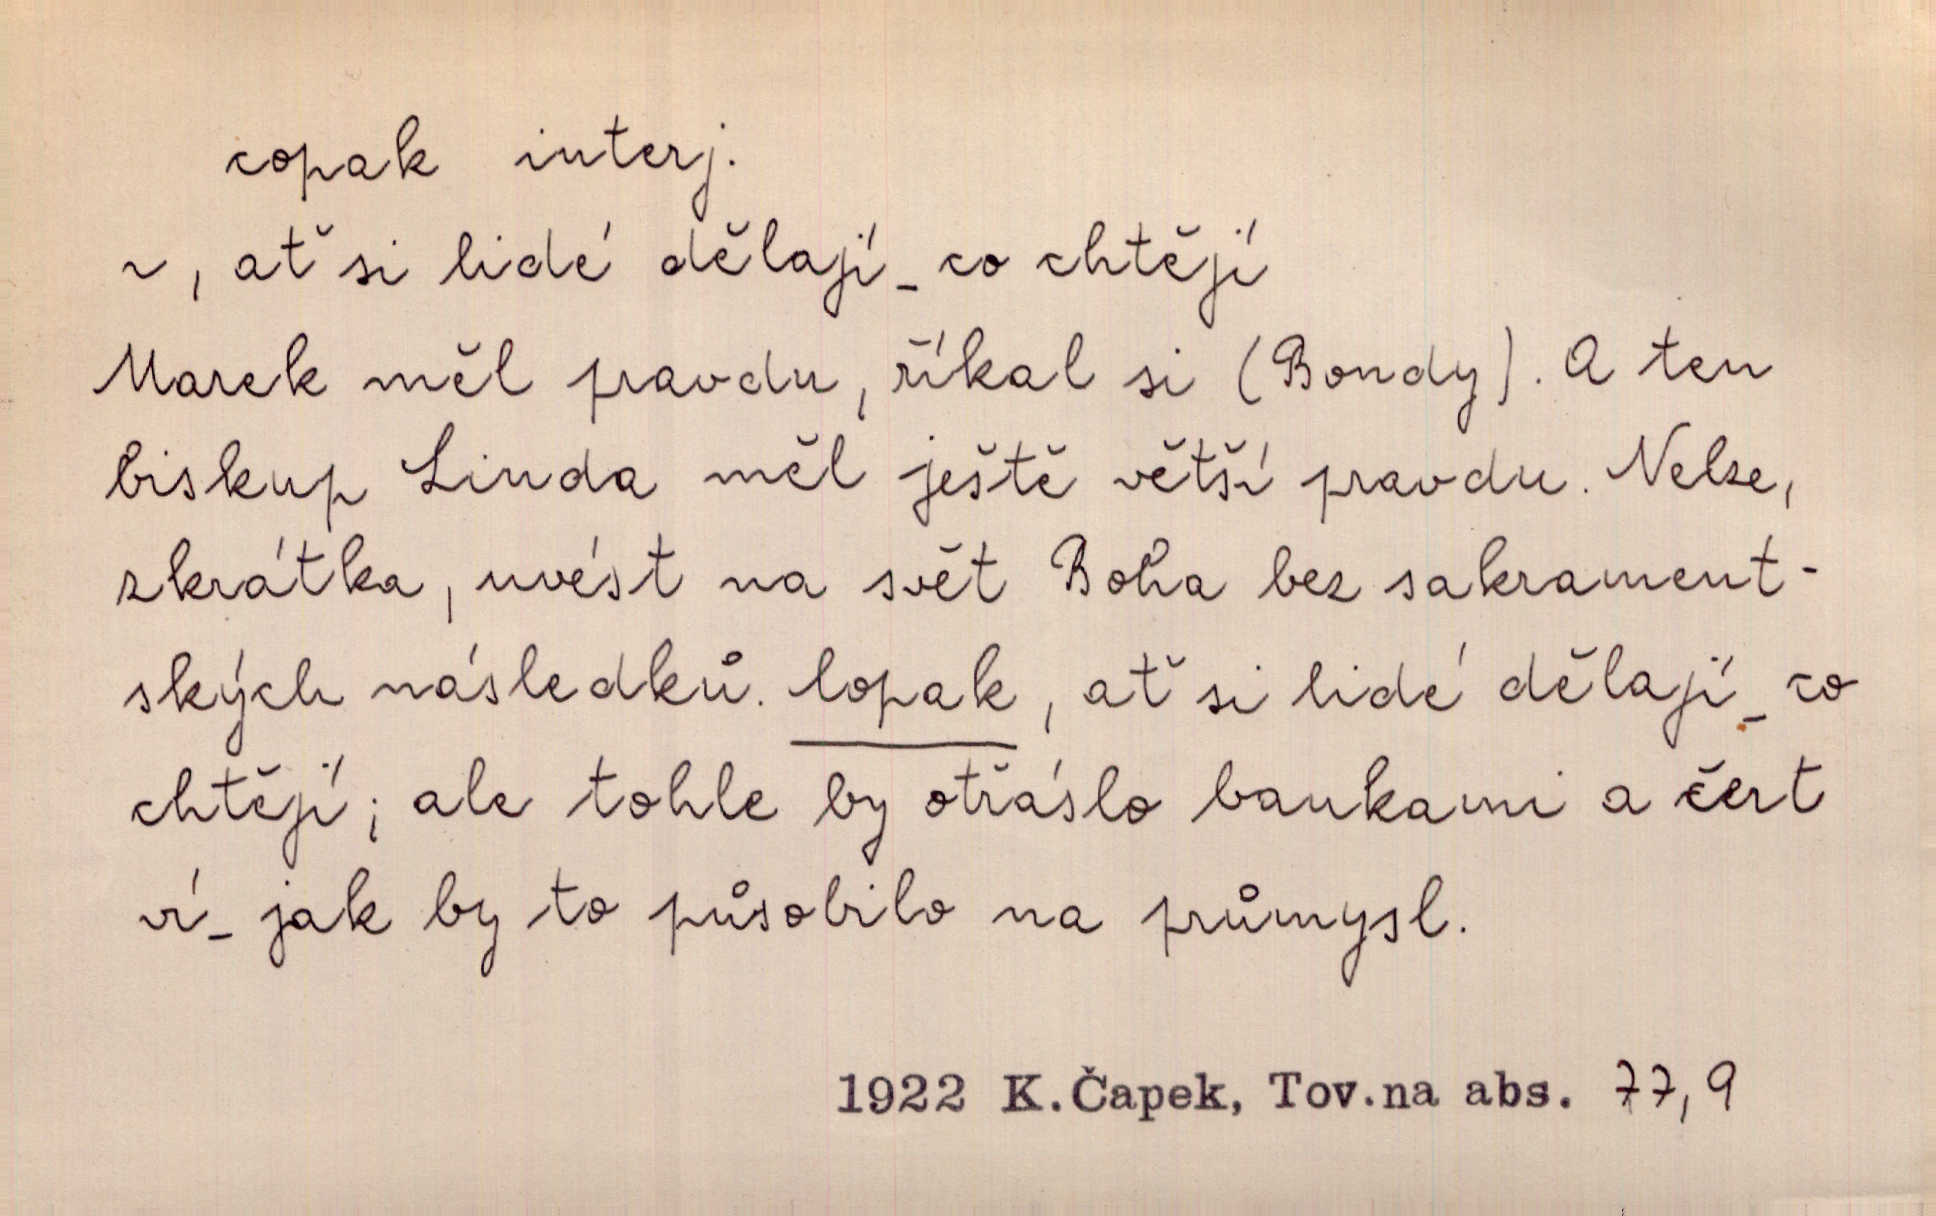 copak interj.
~, ať si lidé dělají_co chtějí
Marek měl pravdu, říkal si (Bondy). A ten
biskup Linda měl ještě větší pravdu. Nelze,
zkrátka, uvést na svět Boha bez sakrament-
ských následků. Copak, ať si lidé dělají_co
chtějí; ale tohle by otřáslo bankami a čert
ví_jak by to působilo na průmysl.
1922 K.Čapek, Tov.na abs. 77,9